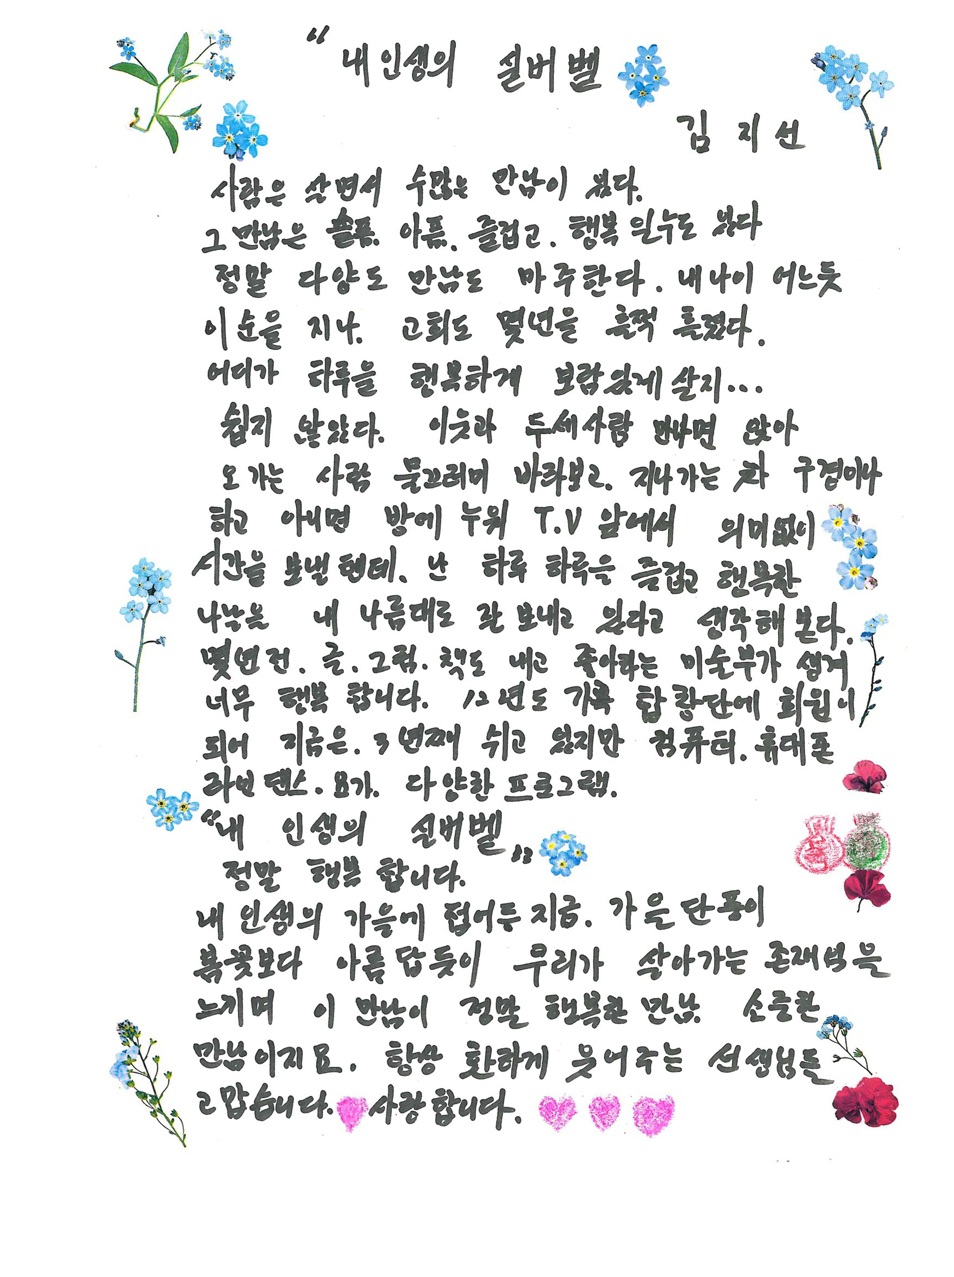 "내 인생의 실버벨
김 지 선
사람은 살면서 수많은 만남이 있다.
그 만남은 슬픔. 아픔. 즐겁고. 행복 일수도 있다
정말 다양도 만남도 마주한다. 내 나이 어느듯
이순을 지나. 고희도 몇년을 훌쩍 흘렀다.
어디가 하루을 행복하게 보람있게 살지...
쉽지 않았다. 이웃과 두세사람 만나면 앉아
오가는 사람 물끄러미 바라보고. 지나가는 차 구경이나
하고 아니면 방에 누워 T.V 앞에서 의미없이
시간을 보낼텐데. 난 하루 하루을 즐겁고 행복한
나날을 내 나름대로 잘 보내고 있다고 생각해 본다.
몇년전. 글. 그림. 책도 내고 좋아라는 미술부가 생겨
너무 행복 합니다. 12년도 가족 합창단에 회원이
되어 지금은. 3년째 쉬고 있지만 컴퓨터. 휴대폰
라인댄스. 요가. 다양한 프로그램.
"내 인생의 실버벨"
정말 행복 합니다.
내 인생의 가을에 접어든 지금. 가을 단풍이
봄꽃보다 아름답듯이 우리가 살아가는 존재력을
느끼며 이 만남이 정말 행복한 만남. 소중한
만남이지요. 항상 환하게 웃어주는 선생님들
고맙습니다. 사랑합니다.